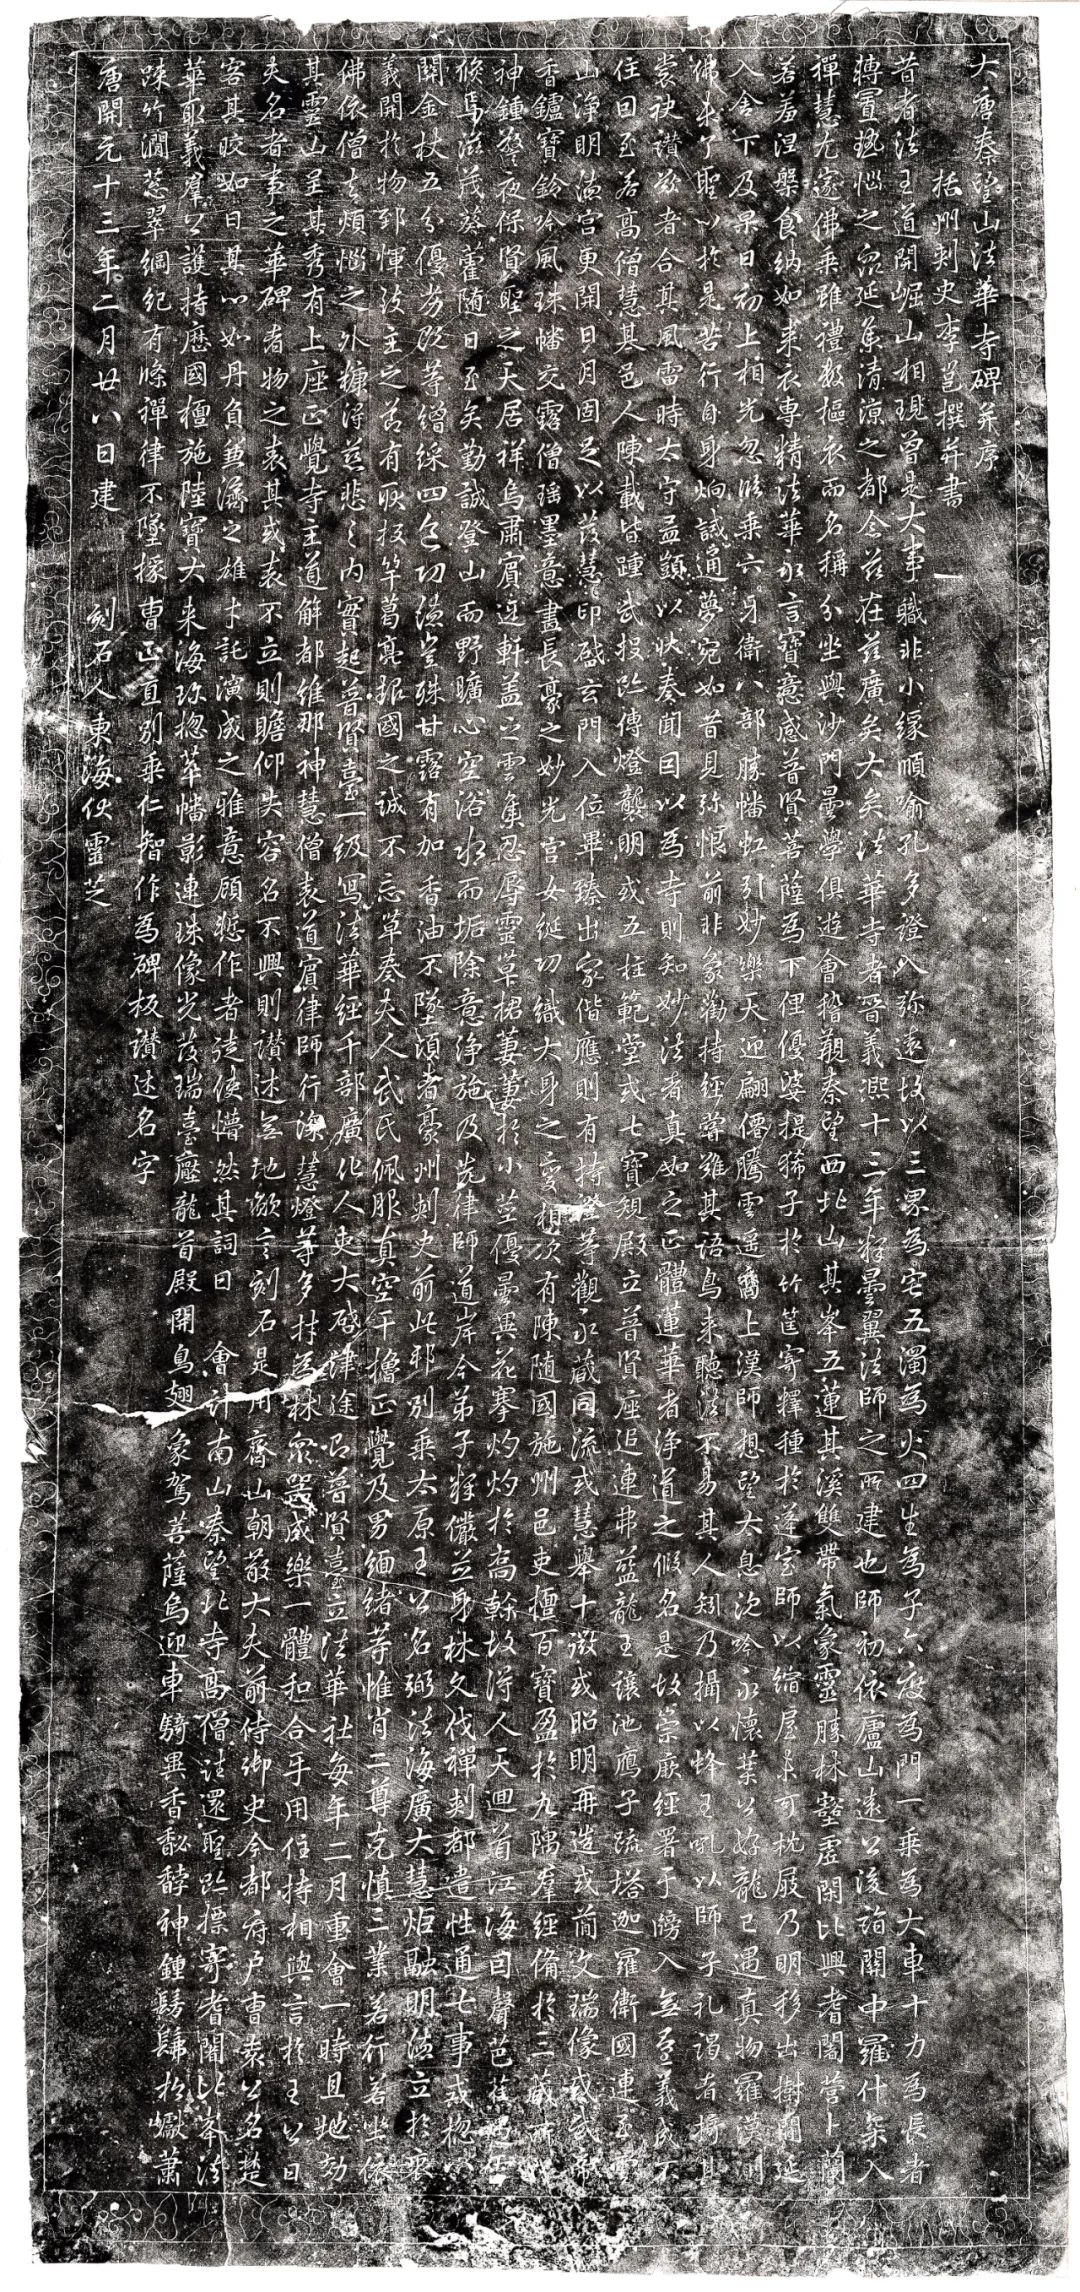 大唐秦望山法華寺碑并序
括州刺史李邕撰并書
昔者法王道開崛山相現曾是大事職非小緣順喻孔多證入弥遠故以三界為宅五濁為火四生為子六度為門一乘為大車十力為長者
轉置熱惱之眾延集清涼之都念茲在茲廣矣大矣法華寺者晉義熙十三年釋曇翼法師之所建也師初依廬山遠公後詣關中羅什架入
禪慧尤邃佛乘雖禮數摳衣而名稱分坐與沙門曇學俱遊會稽覯秦望西北山其峯五蓮其溪雙帶氣象靈勝林壑虛閑比興耆闍營卜蘭
若羞涅槃食納如來衣專精法華永言寶意感普賢菩薩為下俚優婆提豨子於竹筐寄釋種於蓬室師以縮屋未可枕屐乃明移出樹間延
入舍下及果日初上相光忽臨乘六牙衛八部勝幡虹引妙樂天迎翩僊騰雲遥裔上漢師想望太息沈吟永懷葉公好龍已遇真物羅漢測
佛未了聖心於是苦行自身炯誠通夢宛如昔見弥恨前非象勸持經嘗雖其語鳥來聽法不易其人矧乃攝以蜂王吼以師子礼謁者摳其
裳袂讚歎者合其風雷時太守孟顗以狀奏聞因以為寺則知妙法者真如之正體蓮華者淨道之假名是故崇厥經署于牓入無量義成不
住因至若高僧慧基邑人陳載皆踵武投跡傳燈襲明或五柱範堂或七寶規殿立普賢座追連弗藍龍王讓池鷹子疏塔迦羅衛國連至雪
山淨明德宫更開日月固足以發慧印啟玄門入位畢臻出家偕應則有持證等觀永藏同流或慧舉十徵或昭明再造或簡文瑞像或武帝
香鑪寶鈴吟風珠幡交露僧瑶墨意畫長豪之妙光宫女綖功織大身之變相次有陳隨國施州邑吏檀百寶盈於九隅羣經備於三藏所以
神鍾警夜保賢聖之天居祥烏肅賓迓軒盖之雲集忍辱靈草捃萋萋於小莖優曇異花搴灼灼於高幹故得人天迴首江海同聲芭蕉過雷
倏焉滋茂葵藿随日至矣勤誠登山而野曠心空浴水而垢除意淨施及先律師道岸今弟子釋儼並身林久伐禪刺都遣性通七事或揔以
關金杖五分優劣既等繒綵四色功德豈殊甘露有加香油不墜頃者豪州刺史前此邪別乘太原王公名弼法海廣大慧炬融明法立於衷
義開於物郅惲致主之節有耿扳竿葛亮報國之誠不忘草奏夫人武氏佩服真空干擔正覺及男緬緒等惟肖二尊克慎三業若行若坐依
佛依僧去煩惱之外糠得慈悲之內實起普賢臺一級寫法華經千部廣化人吏大啟津途即普賢臺立法華社每年二月重會一時且地効
其靈山呈其秀有上座正覺寺主道解都維那神慧僧表道賓律師行深慧燈等多材為林眾器成樂一體和合手用住持相與言於王公曰
夫名者事之華碑者物之表其或表不立則瞻仰失容名不興則讚述無地願言刻石是用齊山朝散大夫前侍御史今都府戶曹袁公名楚
客其皎如日其心如丹負兼濟之雄才託演成之雅意顧慙作者徒使懵然其詞曰　會計南山秦望北寺高僧註還聖跡摽寄耆闍比峯法
華取義羣公護持歷國檀施陸寶大來海珍揔萃幡影連珠像光發瑞臺壓龍首殿開鳥翅象駕菩薩烏迎車騎異香馝馞神鍾鬒髴松巘蕭
踈竹澗葱翠綱紀有條禪律不墜掾曹正直別乘仁智作為碑板讚述名字
唐開元十三年二月廿八日建　　刻石人東海伏靈芝